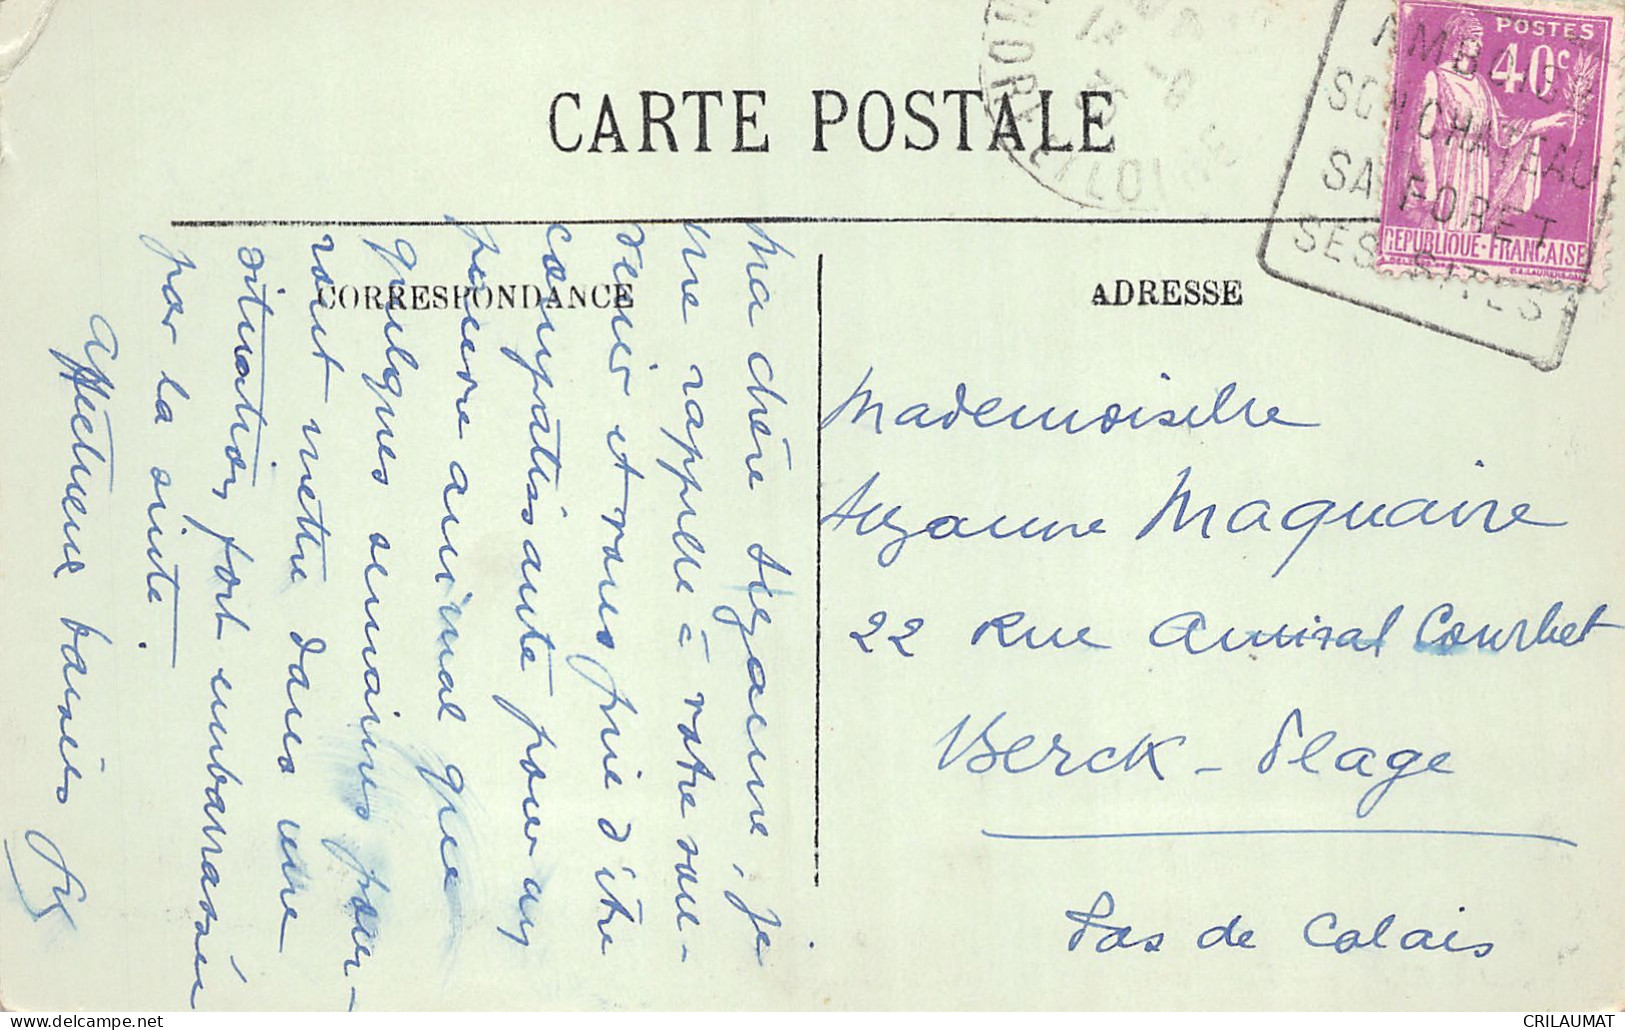 CARTE POSTALE
CORRESPONDANCE
ADRESSE
POSTES
40c
REPUBLIQUE-FRANCAISE
AMBOISE
SON CHATEAU
SA FORET
SES SITES
INDRE ET LOIRE
Ma chère Suzanne, je
me rappelle à votre sou-
venir et vous prie d'être
compatissante pour un
pauvre animal que
quelques semaines pour-
ront mettre dans une
situation fort embarrassée
par la suite.
Affectueux baisers
Mademoiselle
Suzanne Maquaire
22 Rue Amiral Courbet
Berck-Plage
Pas de Calais
delcampe.net
CRILAUMAT